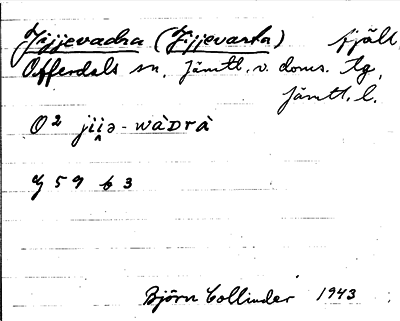 Jijjevadra (Jijjevarta) fjäll
Offerdals sn, Jämtl. v. doms. tg,
Jämtl. l.
O² jii̯ə-wàDrà
J 59 b 3
Björn Collinder 1943